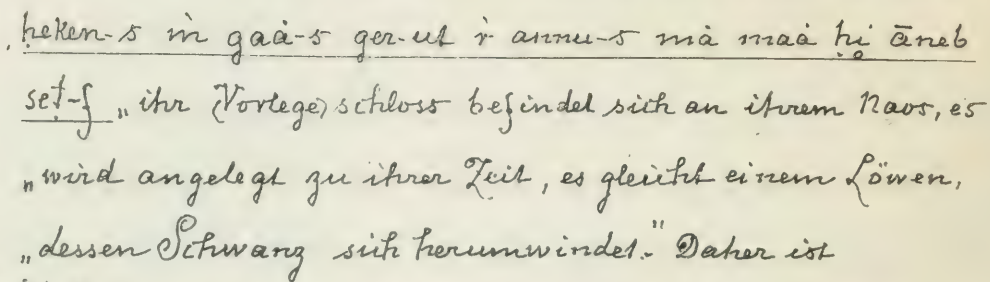 ḥeken-s ṁ gaȧ-s ger-ut ṙ annu-s mȧ maȧ ḥi āneb
set-f „ihr (Vorlege)schloss befindet sich an ihrem Naos, es
„wird angelegt zu ihrer Zeit, es gleicht einem Löwen,
„dessen Schwanz sich herumwindet.” Daher ist